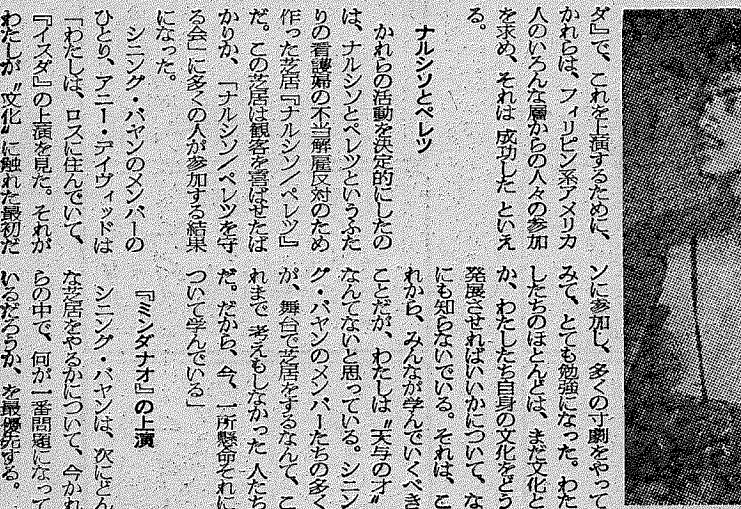 ダ』で、これを上演するために、
かれらは、フィリピン系アメリカ
人のいろんな層からの人々の参加
を求め、それは 成功した といえ
る。
ナルシソとペレツ
かれらの活動を決定的にしたの
は、ナルシソとペレツというふた
りの看護婦の不当解雇反対のため
作った芝居『ナルシソ/ペレツ』
だ。この芝居は観客を喜ばせたば
かりか、「ナルシソ/ペレツを守
る会」に多くの人が参加する結果
になった。
シニング・バヤンのメンバーの
ひとり、アニー・デイヴィッドは
「わたしは、ロスに住んでいて、
『イスダ』の上演を見た。それが
わたしが〝文化〟に触れた最初だ
ンに参加し、多くの寸劇をやって
みて、とても勉強になった。わた
したちのほとんどは、まだ文化と
か、わたしたち自身の文化をどう
発展させればいいかについて、な
にも知らないでいる。それは、こ
れから、みんなが学んでいくべき
ことだが、わたしは〝天与の才〟
なんてないと思っている。シニン
グ・バヤンのメンバーたちの多く
が、舞台で芝居をするなんて、こ
れまで 考えもしなかった 人たち
だ。だから、今、一所懸命それに
ついて学んでいる」
『ミンダナオ』の上演
シニング・バヤンは、次にどん
な芝居をやるかについて、今かれ
らの中で、何が一番問題になって
いるだろうか、を最優先する。